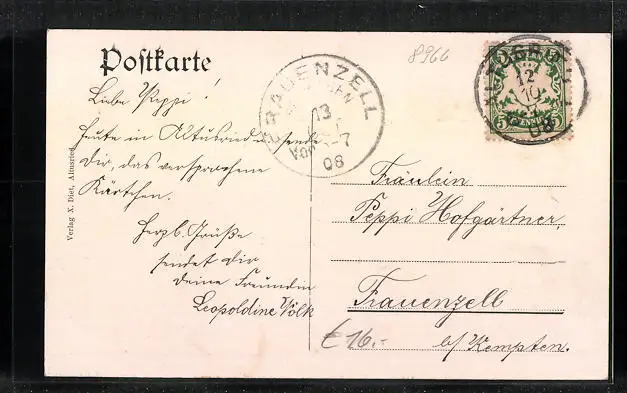 Postkarte
8966
Liebe Peppi!
Heute in Altusried u. sende
Dir, das versprochene
Kärtchen.
Herzl. Grüße
sendet Dir
Deine Freundin
Leopoldine Völk
Verlag X. Diet, Altusried
FRAUENZELL
13
Vor. 7
08
12
10
08
5 PFENNIG 5
Fräulein
Peppi Hofgärtner,
Frauenzell
b/ Kempten.
€ 16.-